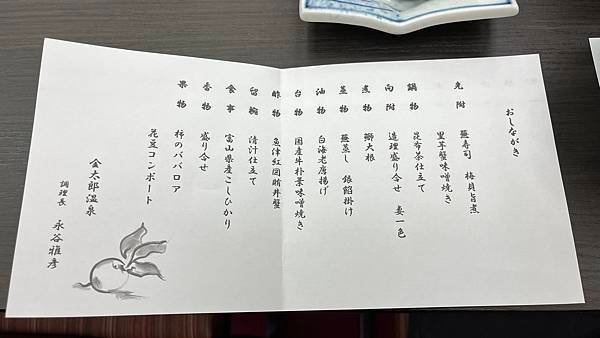 おしながき
先附 蕪寿司 梅貝旨煮
里芋蟹味噌焼き
鍋物 昆布茶仕立て
向附 造理盛り合せ 妻一色
煮物 鰤大根
蒸物 蕪蒸し 銀餡掛け
油物 白海老唐揚げ
台物 国産牛朴葉味噌焼き
酢物 魚津紅図酢丼蟹
留椀 清汁仕立て
食事 富山県産こしひかり
香物 盛り合せ
果物 柿のババロア
花豆コンポート
金太郎温泉
調理長 永谷雅彦